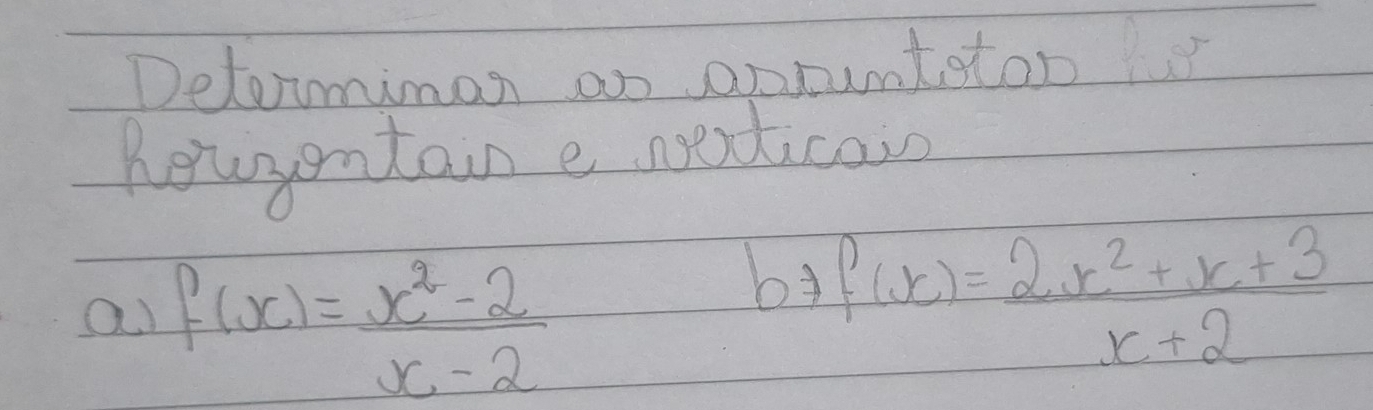 Determinar as assuntotas
horizontais e verticais
a) f(x) = x² - 2 / x - 2 b) f(x) = 2x² + x + 3 / x + 2